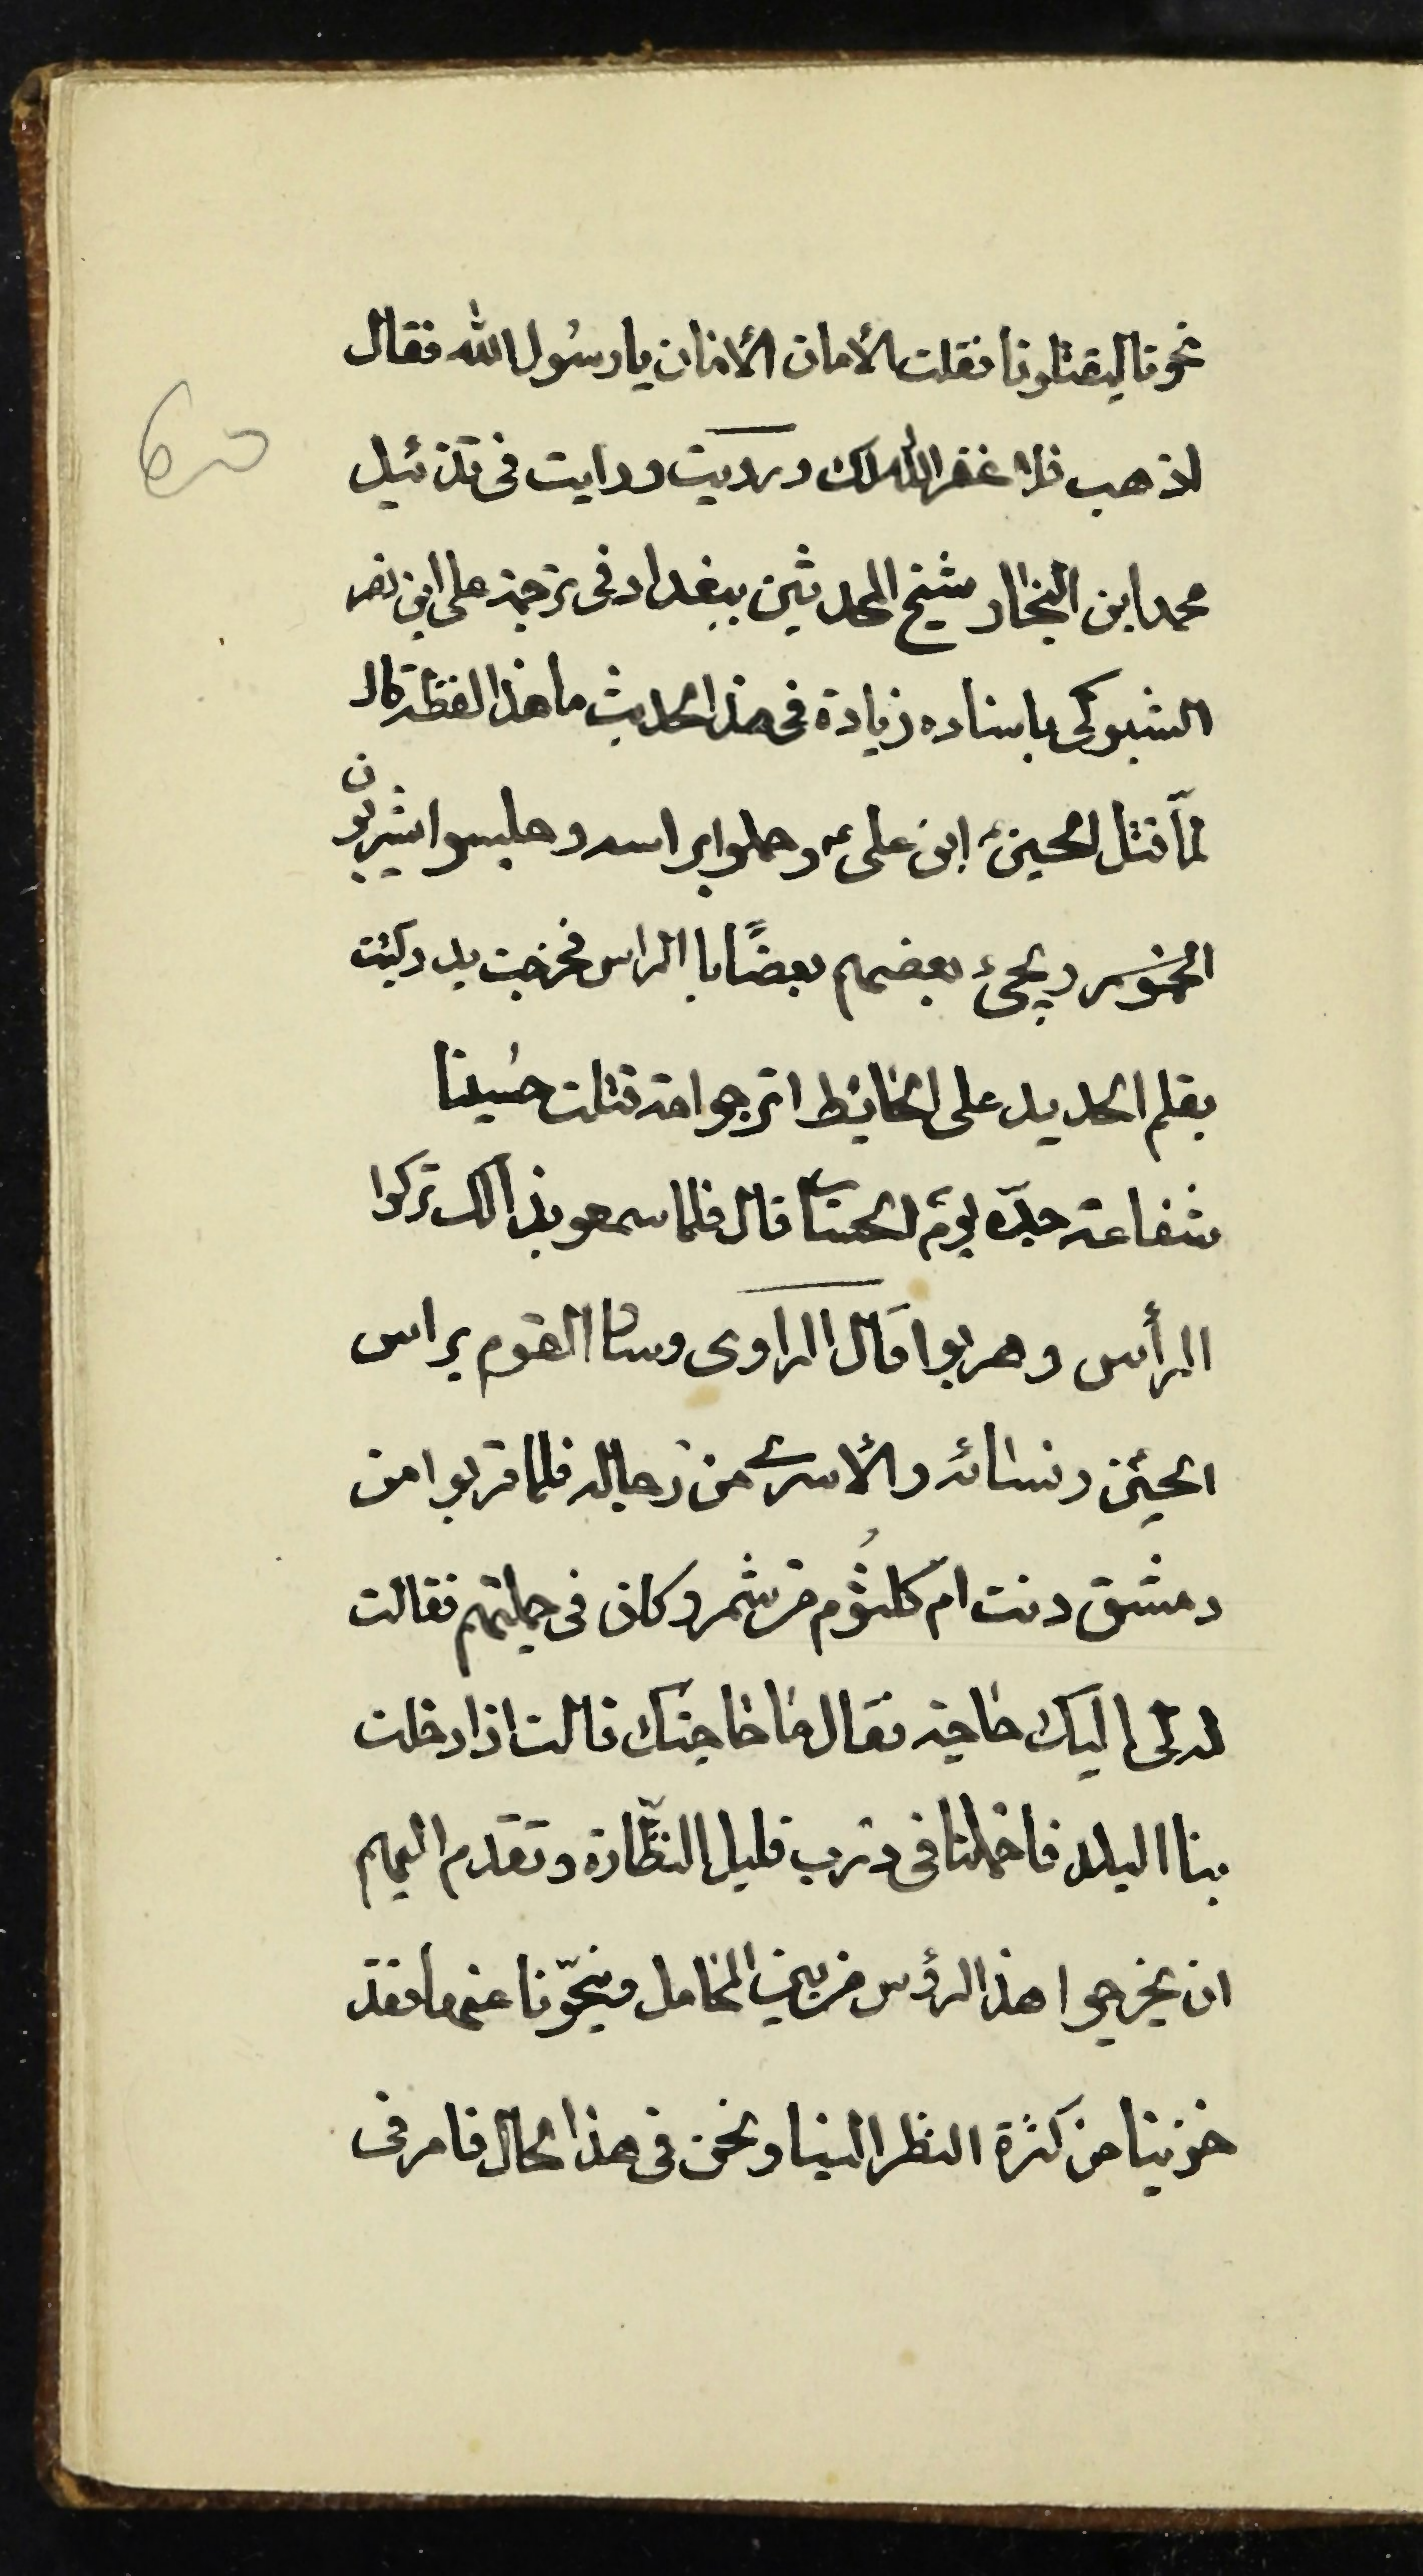 نحونا ليقتلونا فقلت الأمان الأمان يا رسُول الله فقال
اذهب فلا غفر الله لك ورديت ورايت فى تذئيل
محمد ابن النجار شيخ المحدثين ببغداد فى ترجمة على ابن نصر
الشبوكى باسناده زيادة فى هذا الحديث ما هذا لفظه قال
لمّا قتل الحسين ابن على ع وحملوا براسه وجلسوا يشربون
الخمور ويجئ بعضهم بعضًا با الراس فخرجت يد وكتبت
بقلم الحديد على الحايط اترجوا امة قتلت حسُينا
شفاعة جدّه يوم الحساب قال فلما سمعو بذالك تركوا
الرأس وهربوا قال الراوى وسار القوم براس
الحسين ونسائه والأسرى من رجاله فلما قربوا من
دمشق دنت ام كلثُوم من شمر وكان فى جملتهم فقالت
له لى اليك حاجة فقال ما حاجتك قالت اذا دخلت
بنا البلد فاحملنا فى درب قليل النظّارة وتقدم اليهم
ان يخرجوا هذا الرؤس من بين المحامل وينحّونا عنها فقد
خزينا من كثرة النظر الينا ونحن فى هذا الحال فامر فى